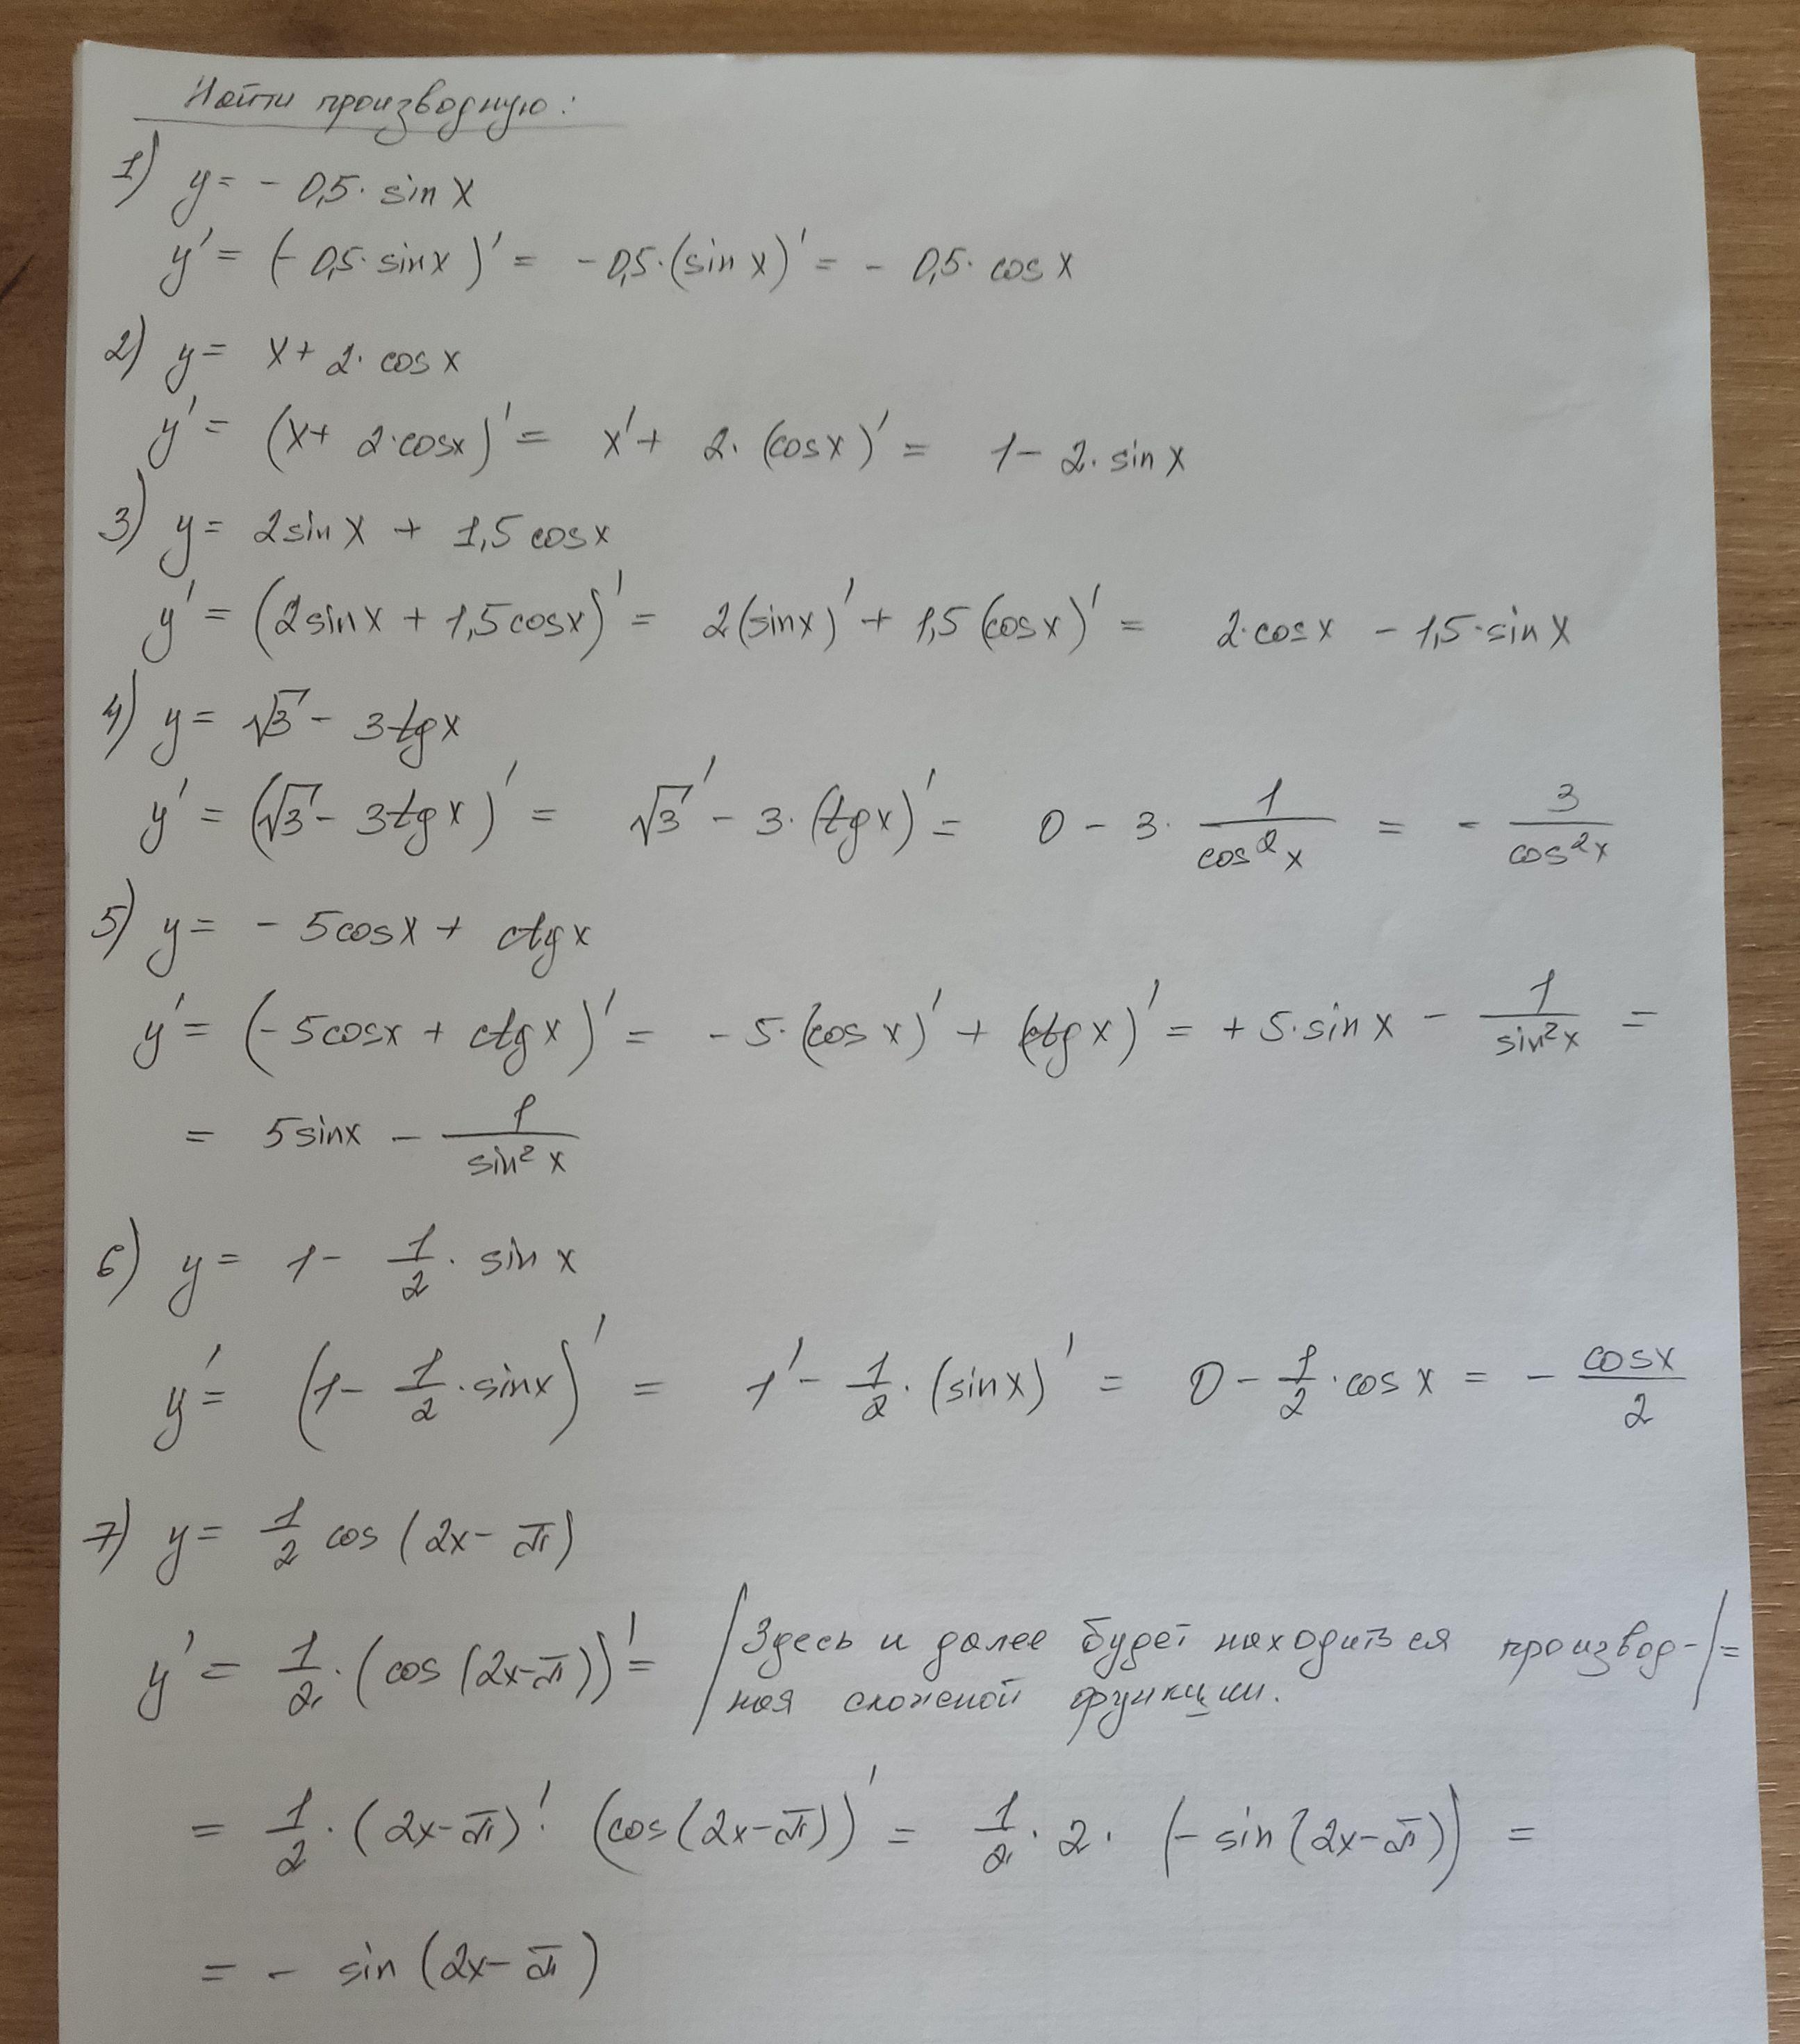 Найти производную:
1) y = - 0,5 · sin x
y' = (- 0,5 · sin x)' = - 0,5 · (sin x)' = - 0,5 · cos x
2) y = x + 2 · cos x
y' = (x + 2 · cos x)' = x' + 2 · (cos x)' = 1 - 2 · sin x
3) y = 2 sin x + 1,5 cos x
y' = (2 sin x + 1,5 cos x)' = 2 (sin x)' + 1,5 (cos x)' = 2 · cos x - 1,5 · sin x
4) y = √3 - 3 tg x
y' = (√3 - 3 tg x)' = √3' - 3 · (tg x)' = 0 - 3 · 1/cos² x = - 3/cos² x
5) y = - 5 cos x + ctg x
y' = (- 5 cos x + ctg x)' = - 5 · (cos x)' + (ctg x)' = + 5 · sin x - 1/sin² x =
= 5 sin x - 1/sin² x
6) y = 1 - 1/2 · sin x
y' = (1 - 1/2 · sin x)' = 1' - 1/2 · (sin x)' = 0 - 1/2 · cos x = - cos x/2
7) y = 1/2 cos (2x - π)
y' = 1/2 · (cos (2x - π))' = / Здесь и далее будет находиться производ- / =
ная сложной функции.
= 1/2 · (2x - π)' · (cos (2x - π))' = 1/2 · 2 · (- sin (2x - π)) =
= - sin (2x - π)